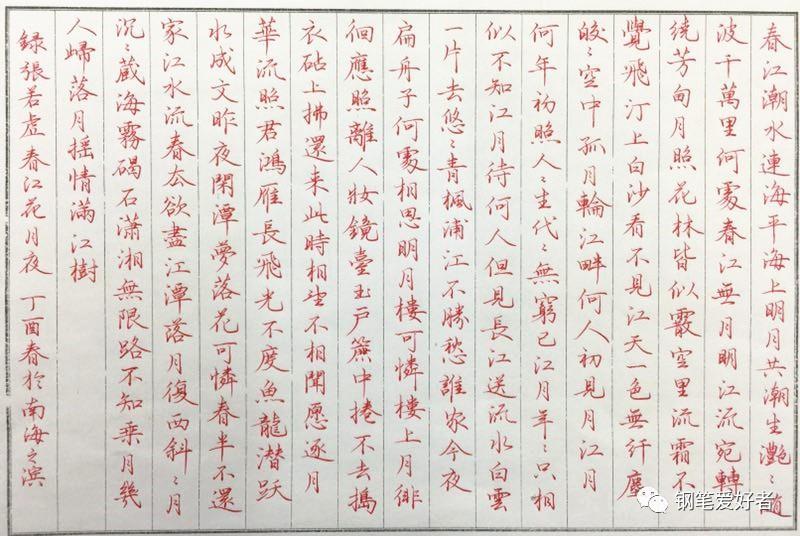 春江潮水連海平海上明月共潮生灧〻随
波千萬里何處春江無月明江流宛轉
繞芳甸月照花林皆似霰空里流霜不
覺飛汀上白沙看不見江天一色無纤塵
皎〻空中孤月輪江畔何人初見月江月
何年初照人〻生代〻無窮已江月年〻只相
似不知江月待何人但見長江送流水白雲
一片去悠〻青楓浦江不勝愁誰家今夜
扁舟子何處相思明月樓可憐樓上月徘
徊應照離人妝鏡臺玉户簾中捲不去搗
衣砧上拂還来此時相望不相聞愿逐月
華流照君鴻雁長飛光不度魚龍潜跃
水成文昨夜閑潭夢落花可憐春半不還
家江水流春去欲盡江潭落月復西斜〻月
沉〻藏海霧碣石瀟湘無限路不知乘月幾
人歸落月摇情滿江樹
録張若虚春江花月夜 丁酉春於南海之滨
钢笔爱好者